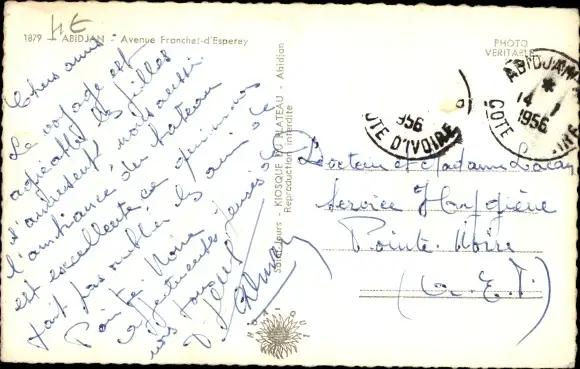 4E
1879 - ABIDJAN - Avenue Franchet-d'Esperey
PHOTO
VERITABLE
Chers amis
Le voyage est
agréable les filles
s'amusent nous aussi
l'ambiance du bateau
est excellente ce qui ne nous
fait pas oublier les amis de
Pointe. Noire
affectueuses pensées de
nous tous
KIOSQUE DU PLATEAU - Abidjan
Reproduction interdite
ABIDJAN
14
1956
COTE
1956
COTE D'IVOIRE
Docteur et Madame
Service d'Hygiène
Pointe. Noire
(A. E. F.)